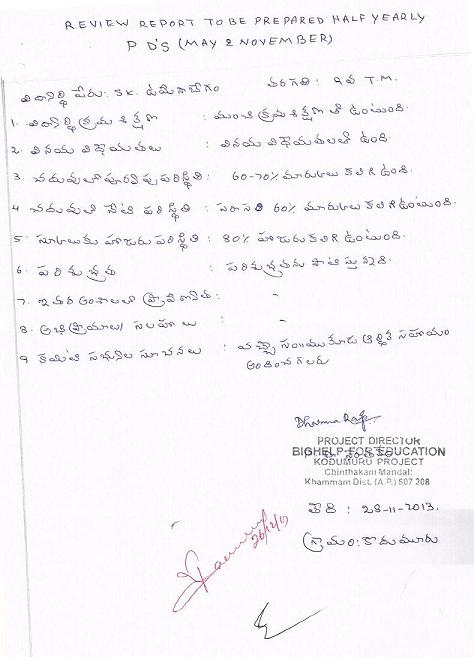 REVIEW REPORT TO BE PREPARED HALF YEARLY
P D'S (MAY & NOVEMBER)
విద్యార్థి పేరు: SK. తరగతి: 9వ T.M.
1. విద్యార్థి క్రమశిక్షణ : మంచి క్రమశిక్షణతో ఉంటుంది.
2. వినయ విధేయతలు : వినయ విధేయతలతో ఉంది.
3 చదువులో పూర్వపు పరిస్థితి: 60-70% మార్కులు కలిగి ఉంది.
4 చదువులో నేటి పరిస్థితి : సరాసరి 60% మార్కులు కలిగి ఉంటుంది.
5 స్కూలుకు హాజరు పరిస్థితి : 80% హాజరు కలిగి ఉంటుంది.
6. పరిశుభ్రత : పరిశుభ్రతను పాటిస్తున్నది.
7. ఇతర అంశాలలో ప్రావీణ్యత: -
8. అభిప్రాయాలు/ సలహాలు : -
9 కమిటి సభ్యుల సూచనలు : వచ్చే సం॥ముకూడు ఆర్థిక సహాయం
అందించగలరు
PROJECT DIRECTOR
BIGHELP FOR EDUCATION
KODUMURU PROJECT
Chinthakani Mandal:
Khammam Dist. (A.P.) 507 208
తేది : 28-11-2013.
గ్రామం: కొదుమూరు